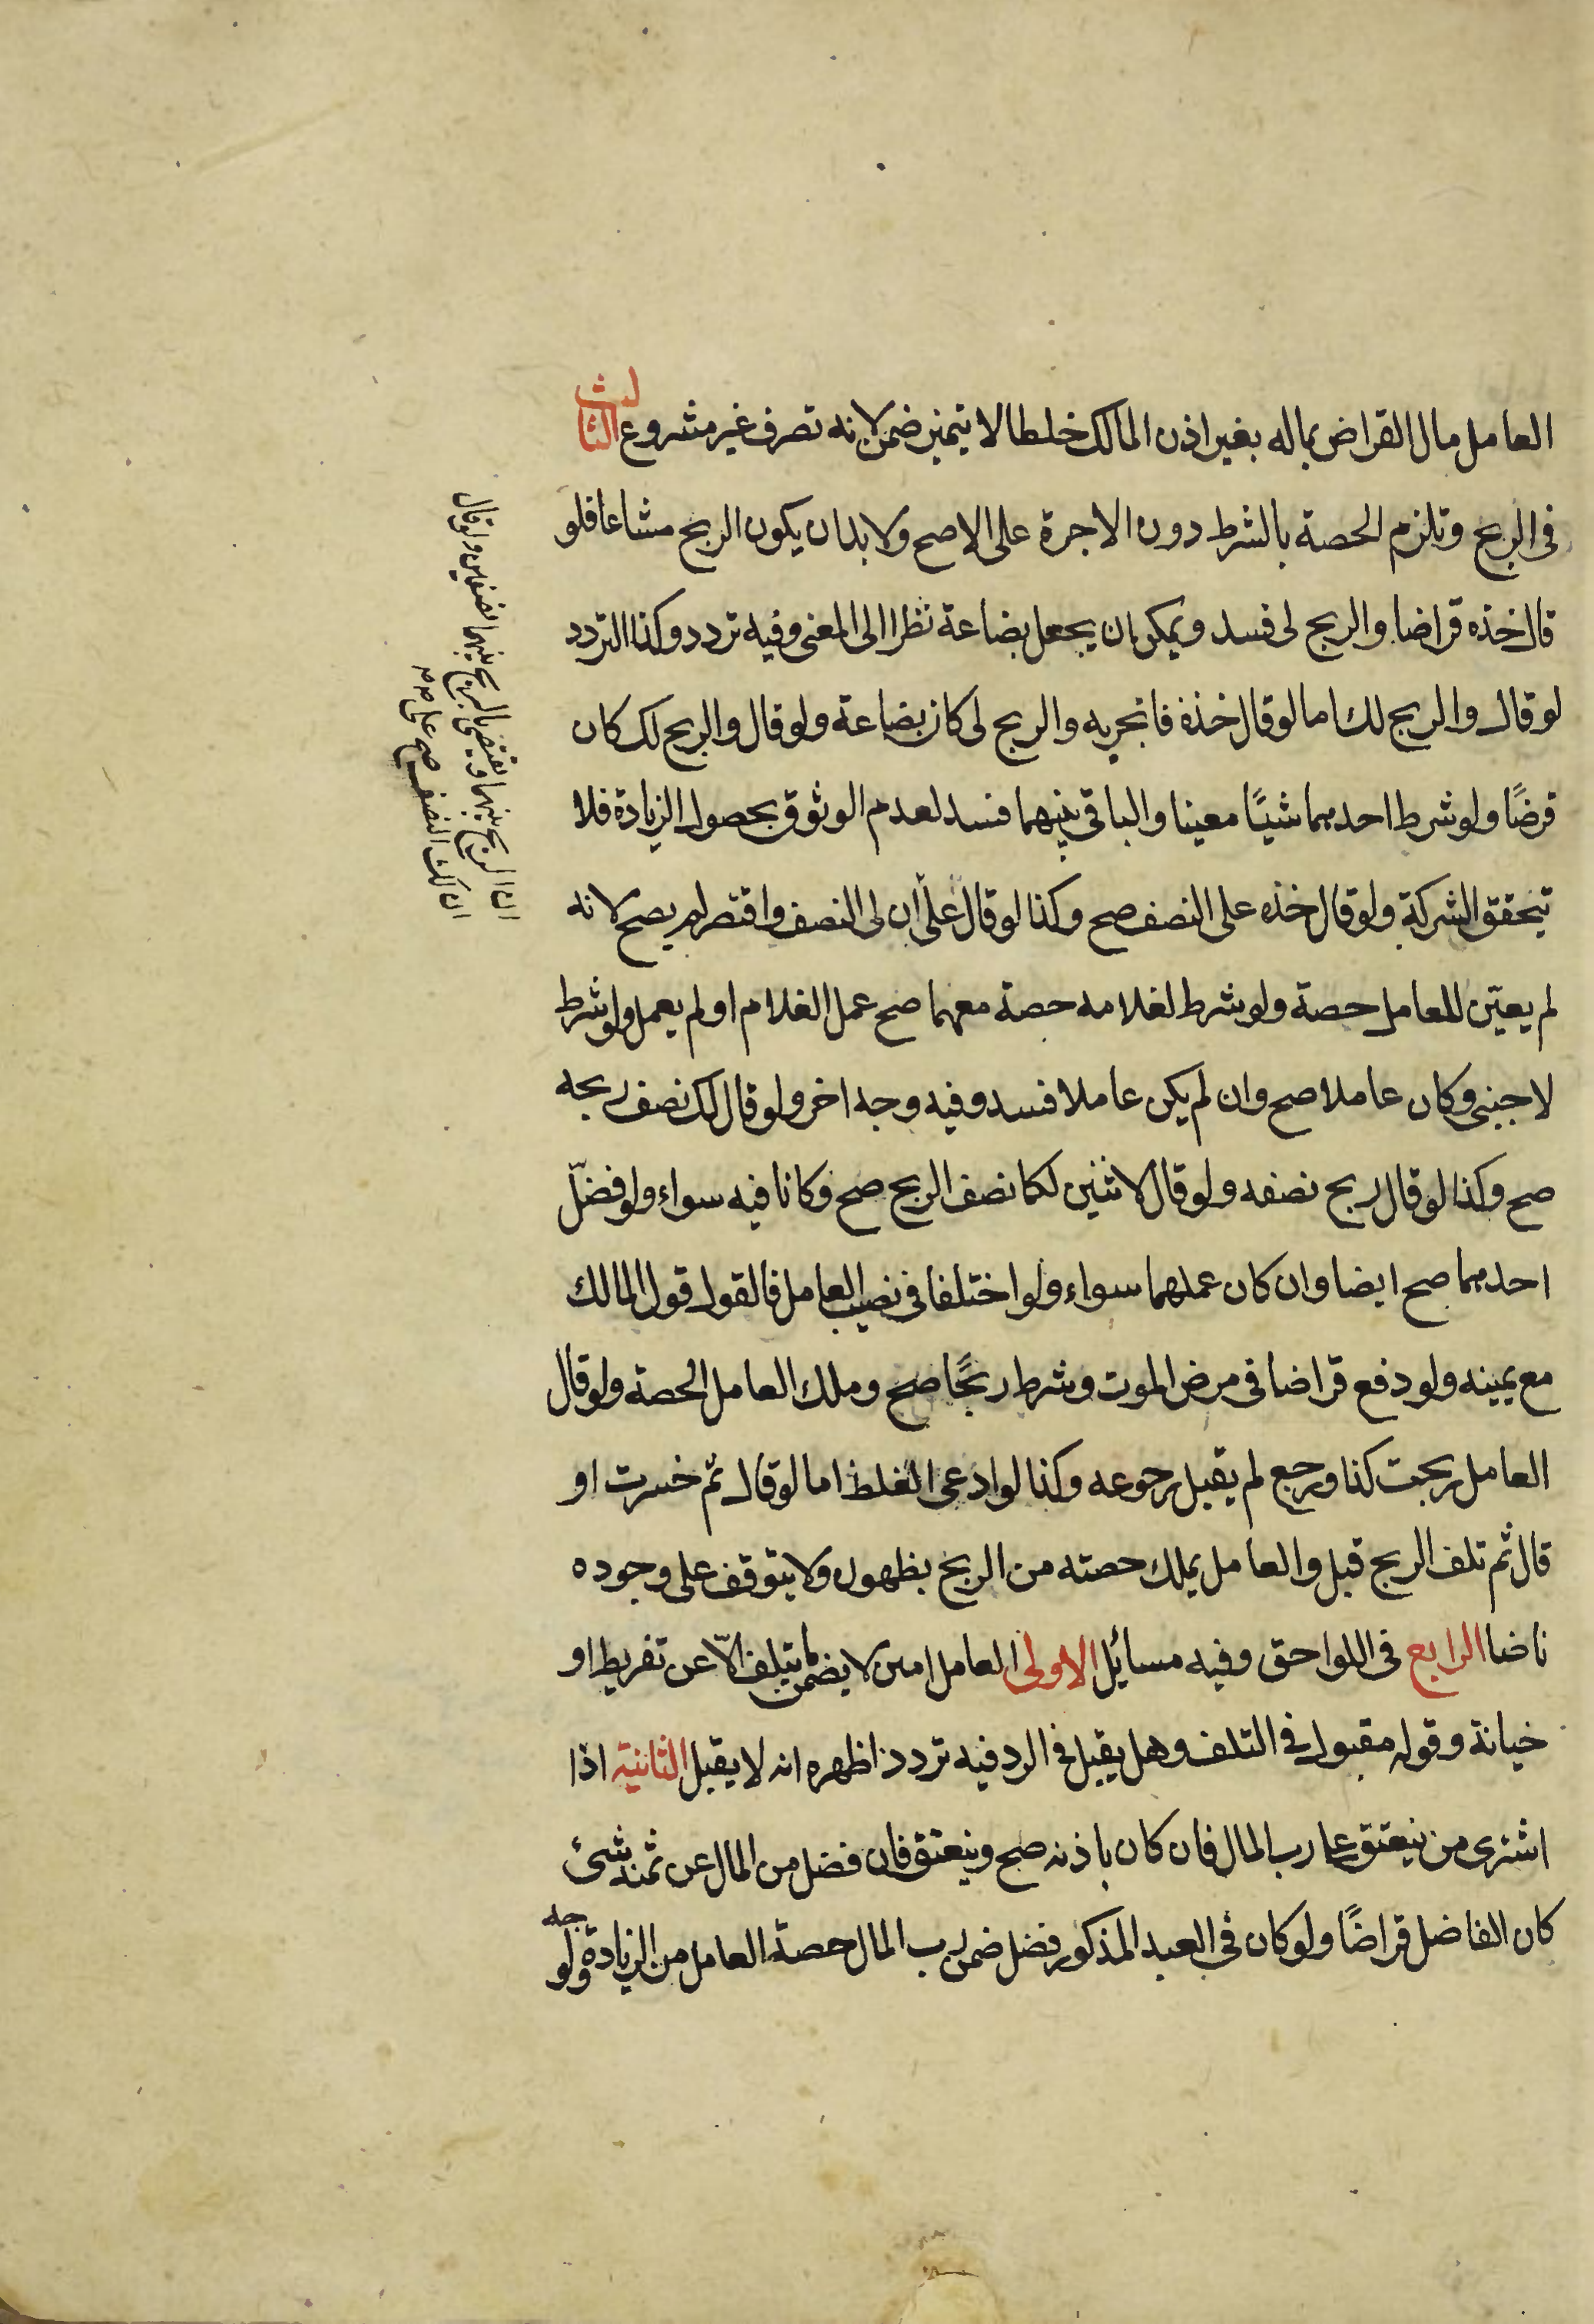 العامل مال القراض بماله بغير اذن المالك خلطا لا يتميز ضمن لانه تصرف غير مشروع الثالث
فى الربح وتلزم الحصة بالشرط دون الاجرة على الاصح ولابد ان يكون الربح مشاعا فلو
قال خذه قراضا والربح لى فسد ويمكن ان يجعل بضاعة نظرا الى المعنى وفيه تردد وكذا التردد
لو قال والربح لك اما لو قال خذه فاتجر به والربح لى كان بضاعة ولو قال والربح لك كان
قرضًا ولو شرط احدهما شيئًا معينا والباقى بينهما فسد لعدم الوثوق بحصول الزيادة فلا
تتحقق الشركة ولو قال خذه على النصف صح وكذا لو قال على أن لى النصف واقتصر لم يصح لانه
لم يعين للعامل حصة ولو شرط لغلامه حصة معهما صح عمل الغلام او لم يعمل ولو شرط
لاجنبى وكان عاملا صح وان لم يكن عاملا فسد وفيه وجه اخر ولو قال لك نصف ربحه
صح وكذا لو قال ربح نصفه ولو قال لاثنين لكما نصف الربح صح وكانا فيه سواء ولو فضّل
احدهما صح ايضا وان كان عملهما سواء ولو اختلفا فى نصيب العامل فالقول قول المالك
مع يمينه ولو دفع قراضا فى مرض الموت وشرط ربحًا صح وملك العامل الحصة ولو قال
العامل ربحت كذا ورجع لم يقبل رجوعه وكذا لو ادعى الغلط اما لو قال ثم خسرت او
قال ثم تلف الربح قبل والعامل يملك حصته من الربح بظهوره ولا يتوقف على وجوده
ناضا الرابع فى اللواحق وفيه مسائل الاولى العامل امين لا يضمن ما يتلف الاّ عن تفريط او
خيانة وقوله مقبول فى التلف وهل يقبل فى الرد فيه تردد اظهره انه لا يقبل الثانية اذا
اشترى من ينعتق على رب المال فان كان باذنه صح وينعتق فان فضل من المال عن ثمنه شئ
كان الفاضل قراضًا ولو كان فى العبد المذكور فضل ضمن رب المال حصة العامل من الزيادة ولو
جه
ان الربح بينهما ويقضى بالربح بينهما نصفين ولو قال
ان لك النصف صح على